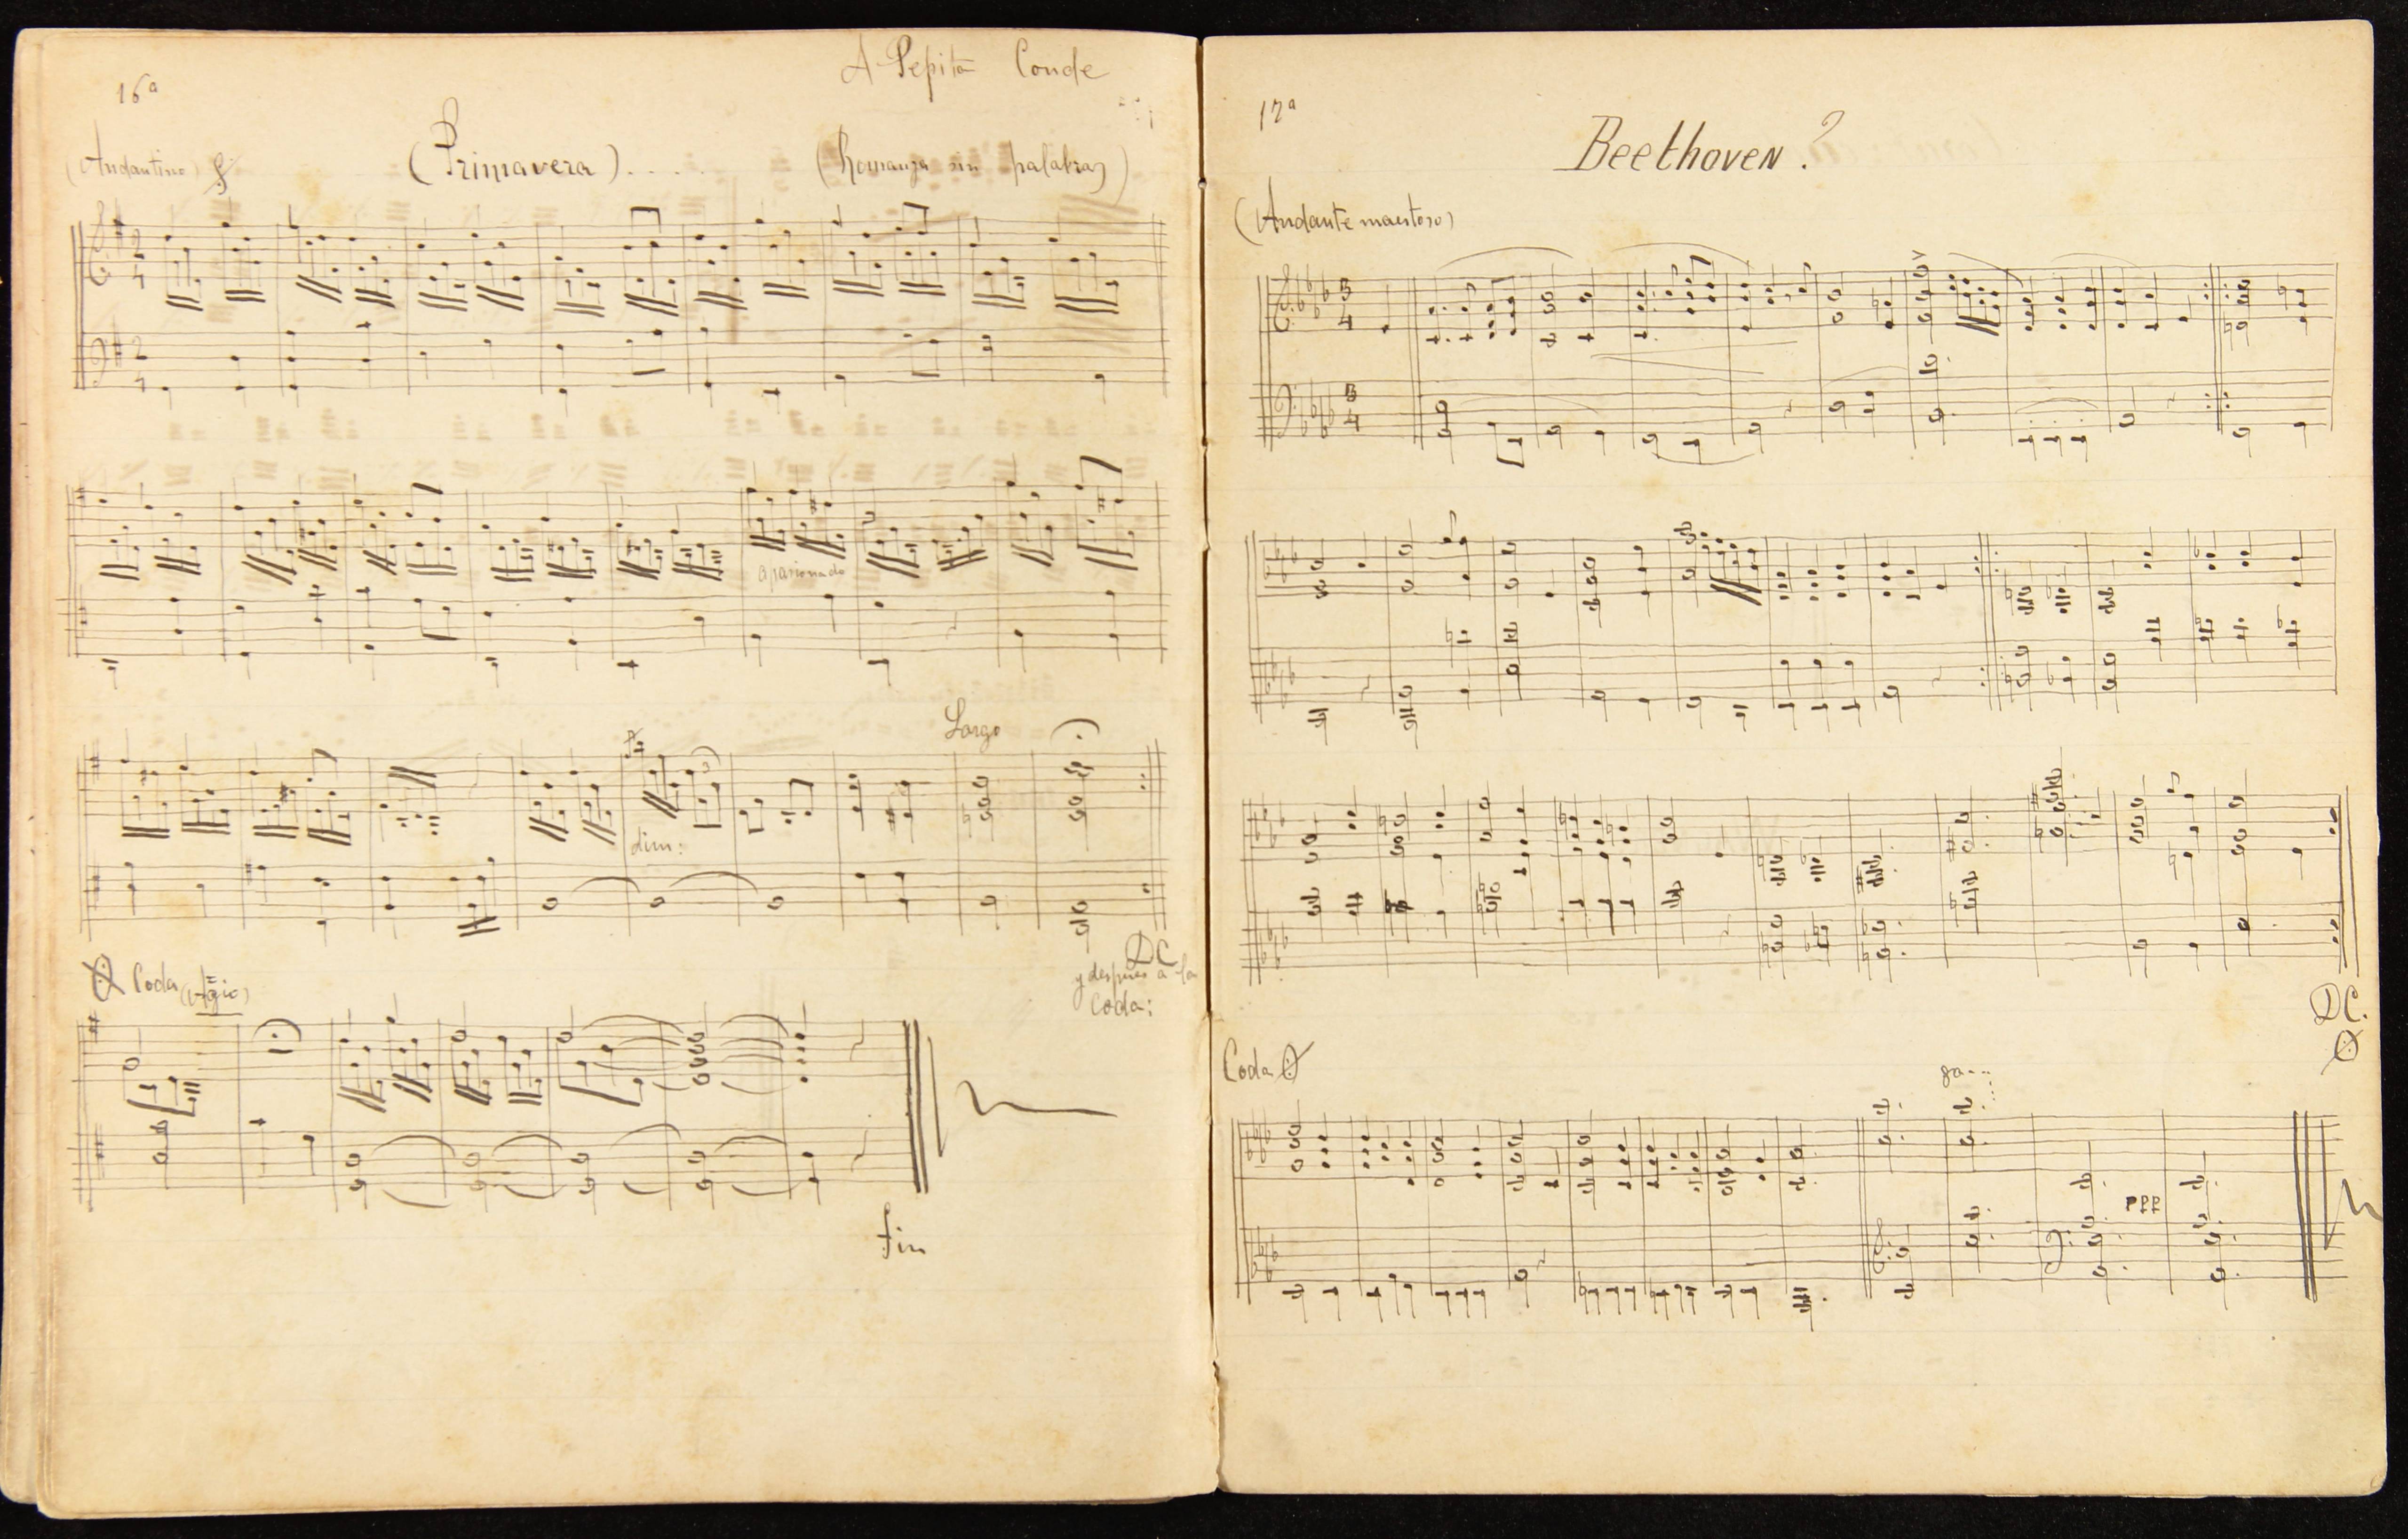 A Pepita Conde
16ª
(Andantino) (Primavera).... (Romanza sin palabras)
2
4
2
4
apasionado
Largo
dim:
DC
y despues a la
Coda:
Coda
Fin
17ª
Beethoven?
(Andante maestoso)
3
4
3
4
DC.
Coda
8a...
PPP